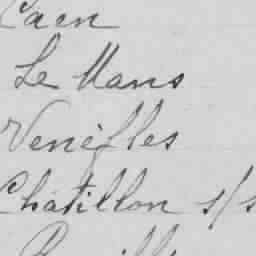 Caen
Le Mans
Venèfles
Châtillon s/s